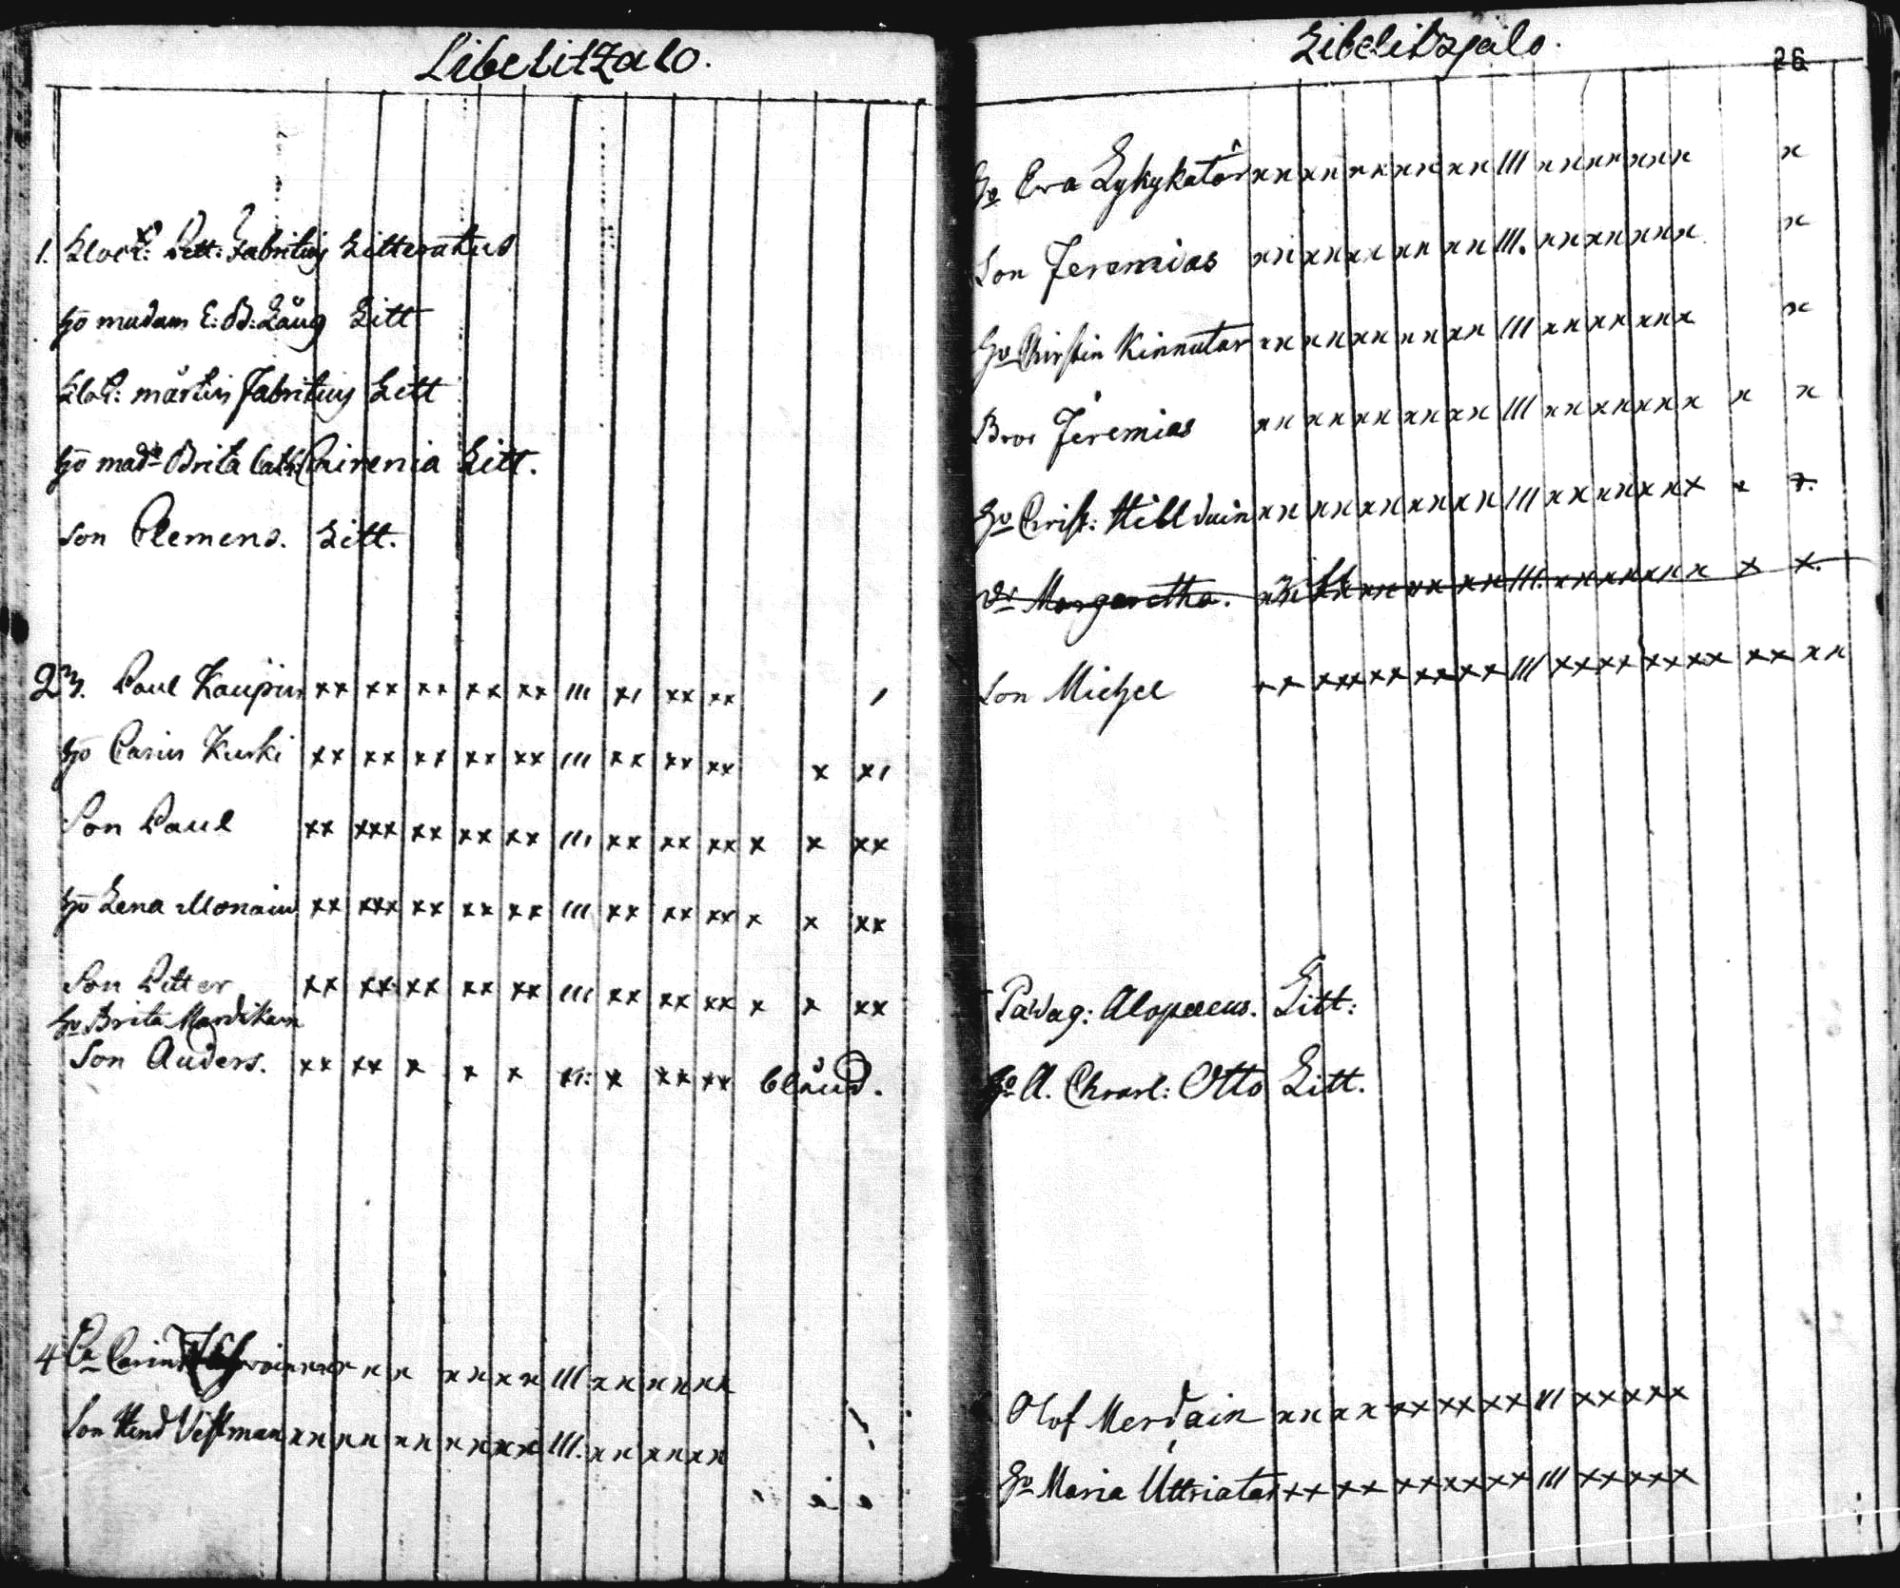 Libelitzalo.
1. Klock: Pett: Fabritius Litteratus
Ho madam E: B: Låug Litt
Klock: Mårtin Fabritius Litt
Ho mad. Brita Cath: Chirenia Litt.
Son Clemens. Litt.
2 3. Paul Kaupin xx xx xx xx xx III x, xx xx
Ho Carin Kuski xx xx xx xx xx III xx xx xx x x,
Son Paul xx xxx xx xx xx III xx xx xx x x xx
Ho Lena Monain xx xxx xx xx xx III xx xx xx x x xx
Son Petter xx xx xx xx xx III xx xx xx x x xx
Ho Brita Mardikain
Son Anders. xx xx x x x x xx xx blåud.
4 Carin x x x x x x III x x x x x x
Son Hend Vestman xx xx xx xx xx III. xx xx xx
Libelitzjalo.
26
Ho Eva Lykykatår xx xx xx xx xx III xx xx xx x x
Son Jeremias xx xx xx xx xx III. xx xx xx x x
Ho Chirstin Kinnutar xx xx xx xx xx III xx xx xx x x
Bror Jeremias xx xx xx xx xx III xx xx xx x x x
Ho Christ: Hilduin xx xx xx xx xx III xx xx xx x x x.
Dr Margaretha. Litt xx xx xx xx III. xx xx xx x x x.
Son Michel xx xxx xx xx xx III xx xx xx xx xx xx
Pædag: Alopæus. Litt:
Ho A. Charl: Otto Litt.
Olof Merdain xx xx xx xx xx III xx xx x
Ho Maria Uttriatar xx xx xx xx xx III xx xx x